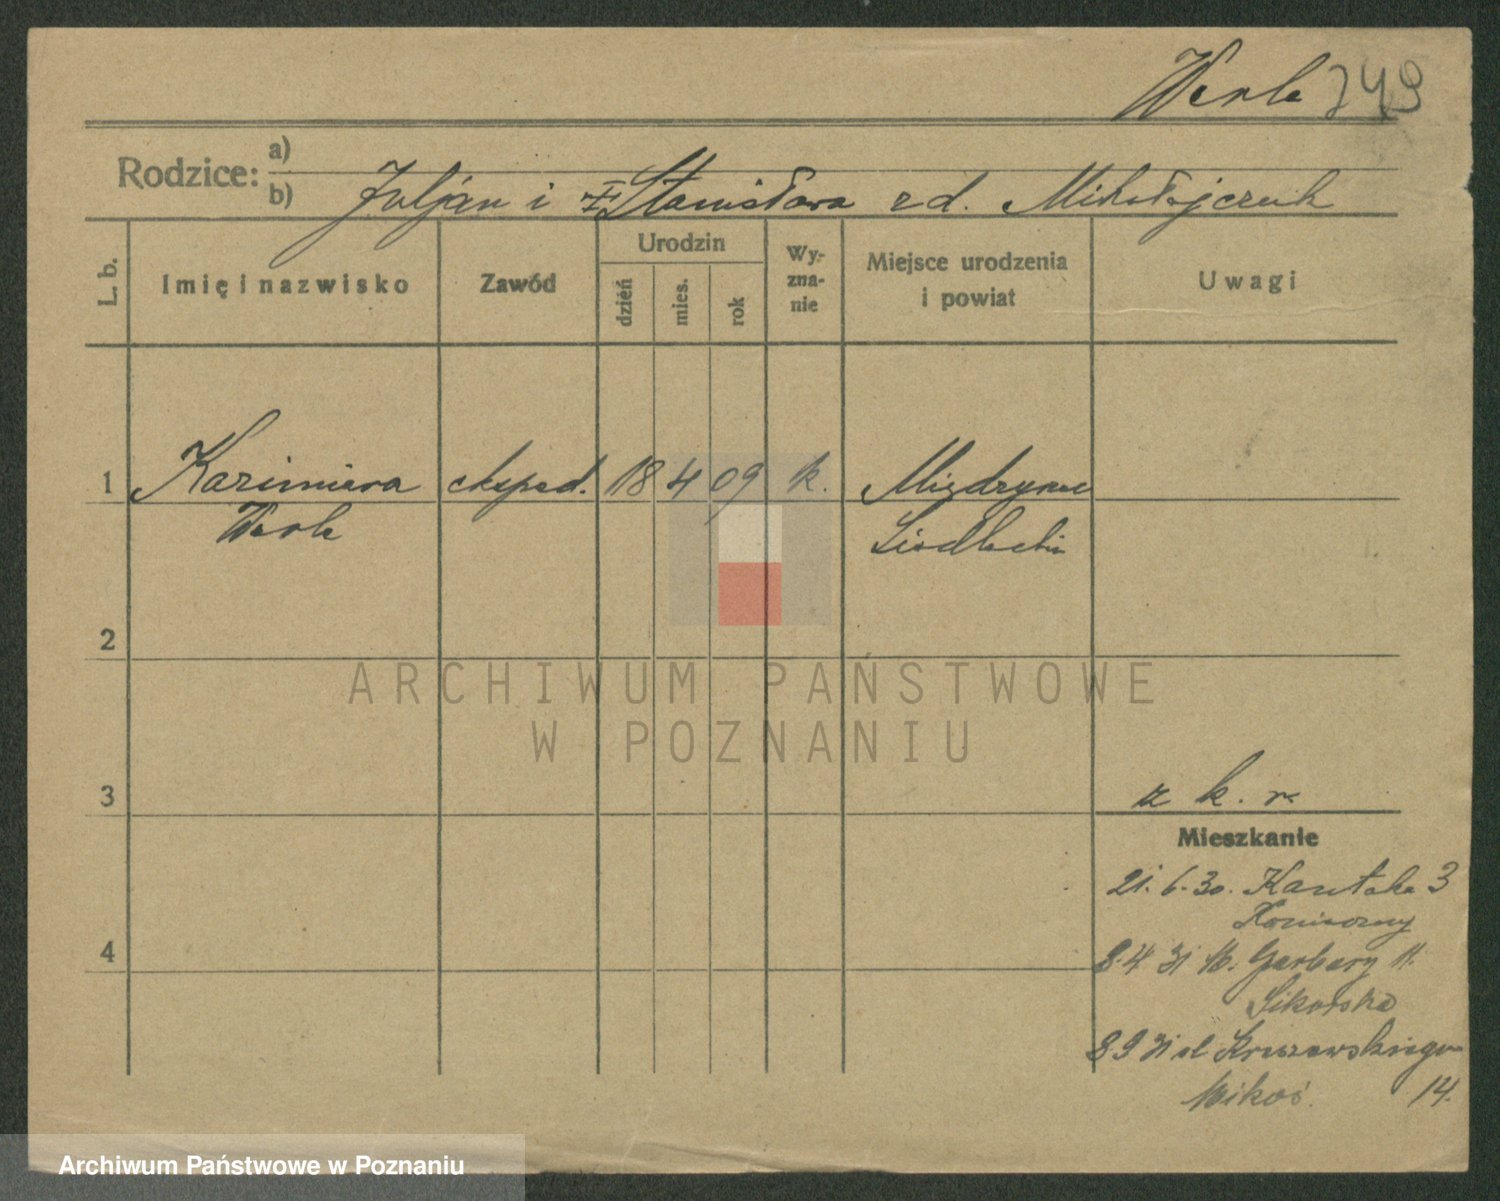 Werla 749
Rodzice: a)
b) Juljan i Stanisława z d. Mikołajczuk
L. b.
Imię i nazwisko
Zawód
Urodzin
dzień
mies.
rok
Wy-
zna-
nie
Miejsce urodzenia
i powiat
Uwagi
1 Kazimiera eksped. 18 4 09 k. Międzyrzec
Werla Siedlecki
2
3
k. r.
Mieszkanie
4
21. 6. 30. Kantaka 3
8 4 31 W. Garbary 11.
Sikorska
8 9 31 ul Kraszewskiego
14.
ARCHIWUM PAŃSTWOWE
W POZNANIU
Archiwum Państwowe w Poznaniu